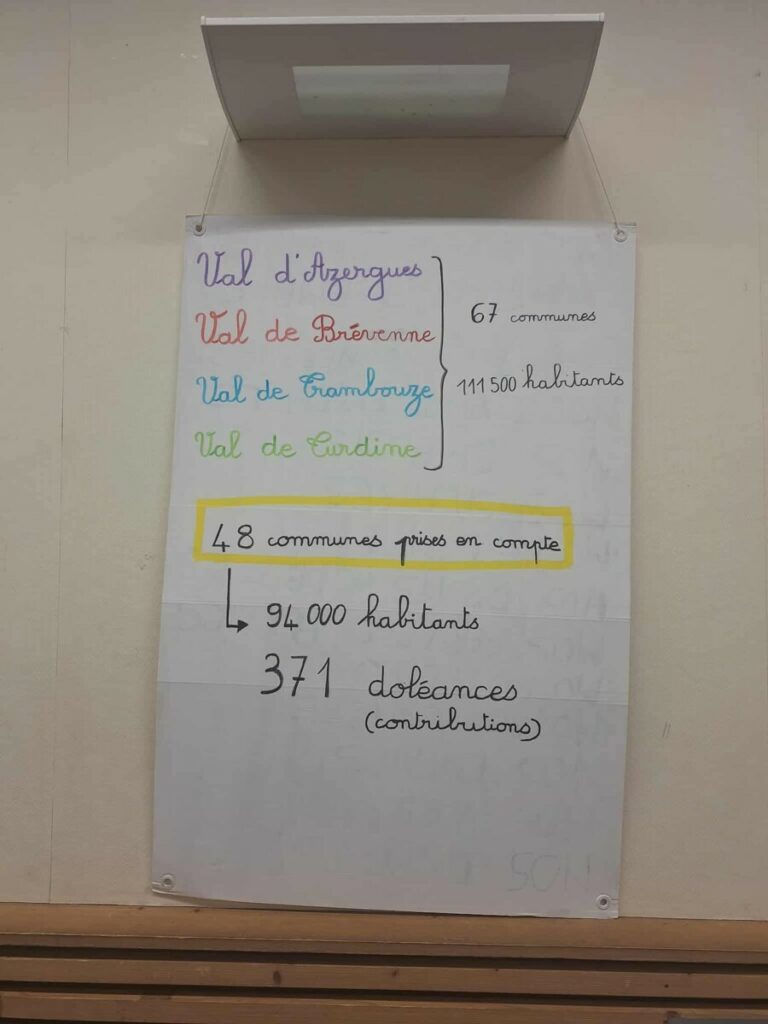 Val d'Azergues
Val de Brévenne
Val de Trambouze
Val de Turdine
67 communes
111 500 habitants
48 communes prises en compte
94 000 habitants
371 doléances
(contributions)